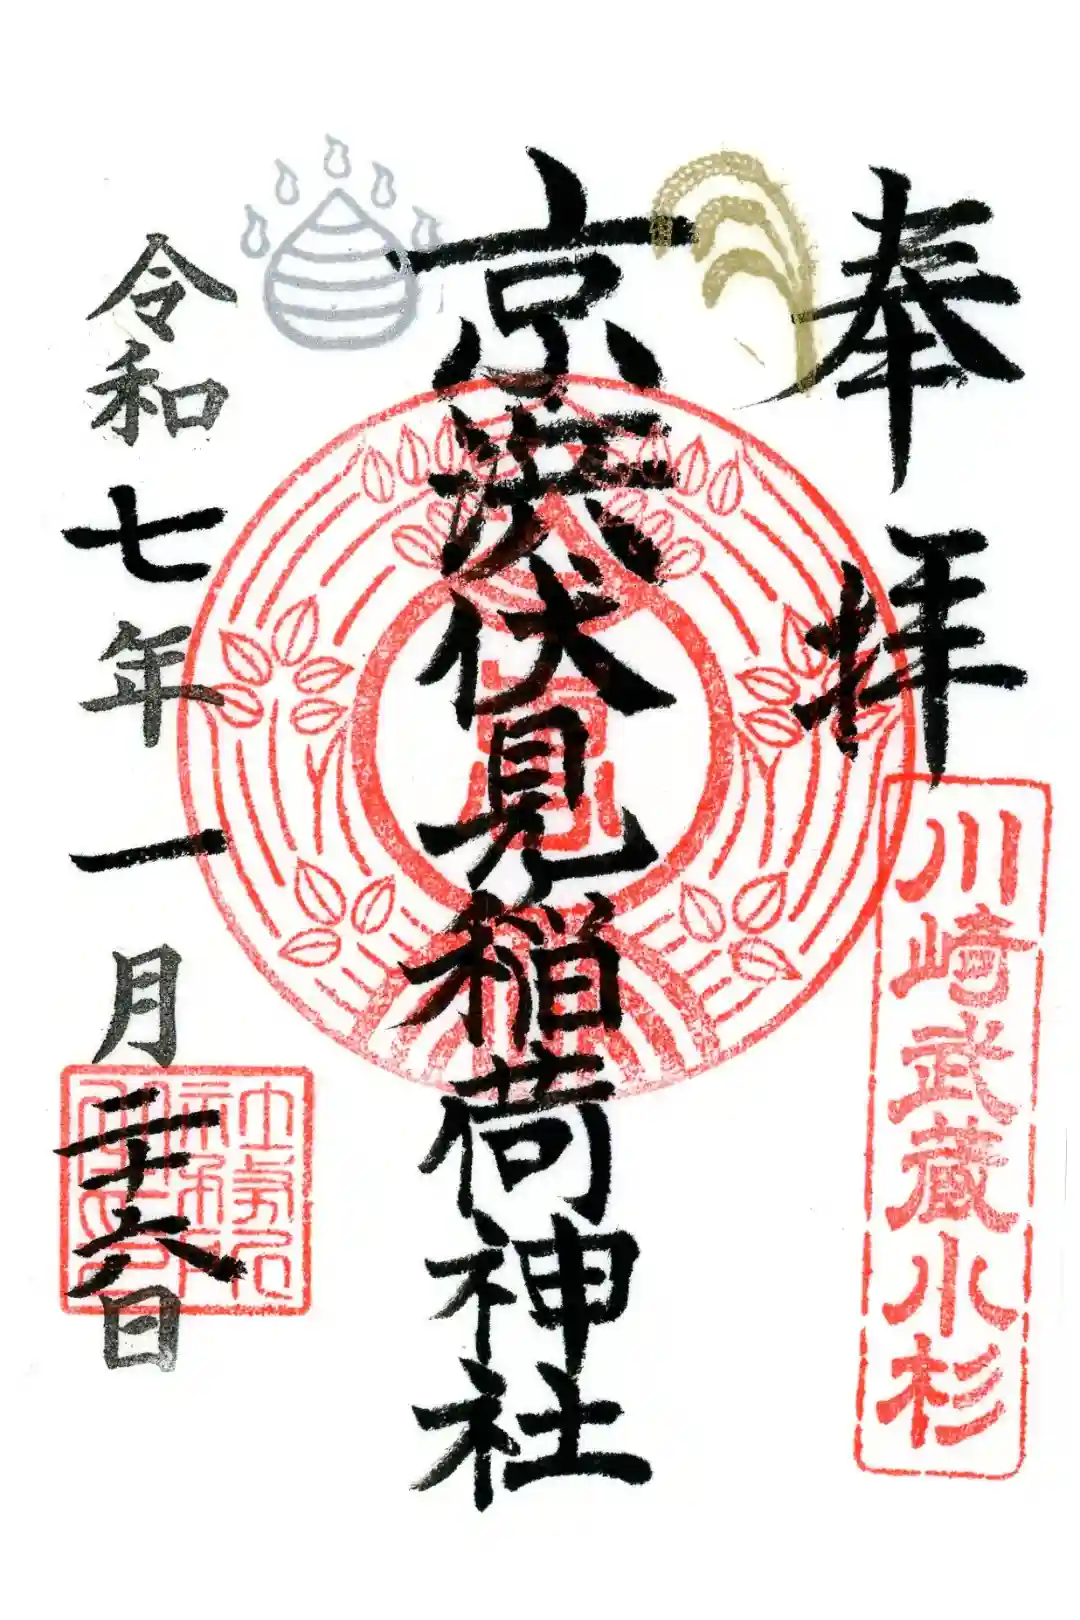 奉拝
川崎武蔵小杉
京濱伏見稲荷神社
令和七年一月二十六日